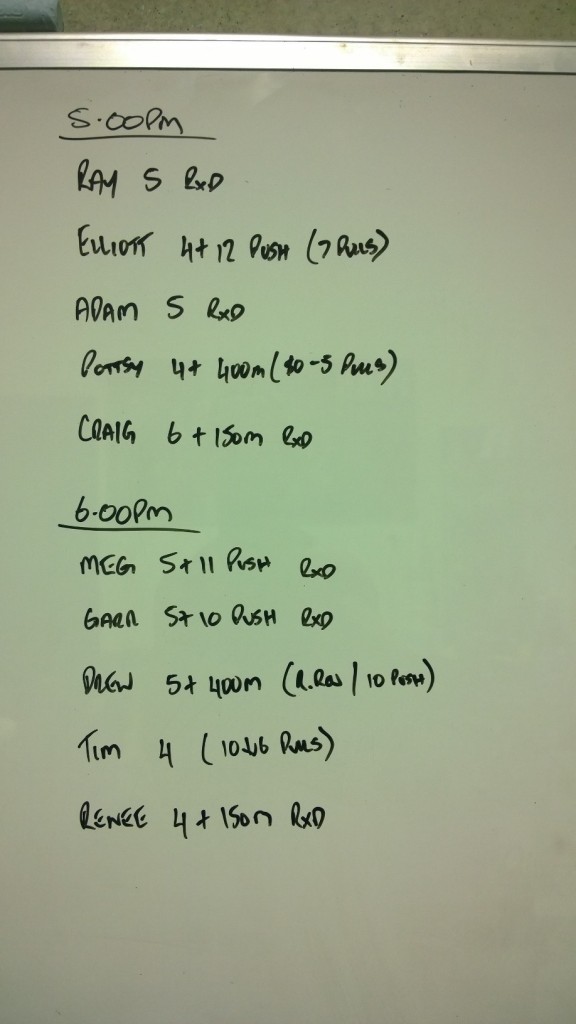 5.00PM
RAY 5 RxD
ELLIOTT 4+12 PUSH (7 PULLS)
ADAM 5 RxD
POTTSY 4+ 400m (10-5 PULLS)
CRAIG 6 + 150m RxD
6.00PM
MEG 5+11 PUSH RxD
GARR 5+10 PUSH RxD
DREW 5+ 400m (R.ROW | 10 PUSH)
TIM 4 (10↓6 PULLS)
RENEE 4 + 150m RxD